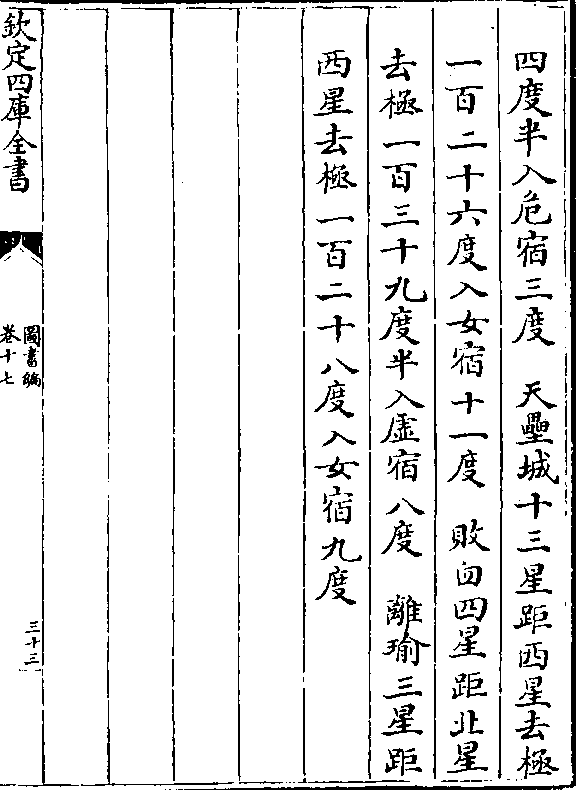 四度半入危宿三度　天壘城十三星距西星去極
一百二十六度入女宿十一度　敗臼四星距北星
去極一百三十九度半入虛宿八度　離瑜三星距
西星去極一百二十八度入女宿九度
欽定四庫全書
圖書編
卷十七
三十三